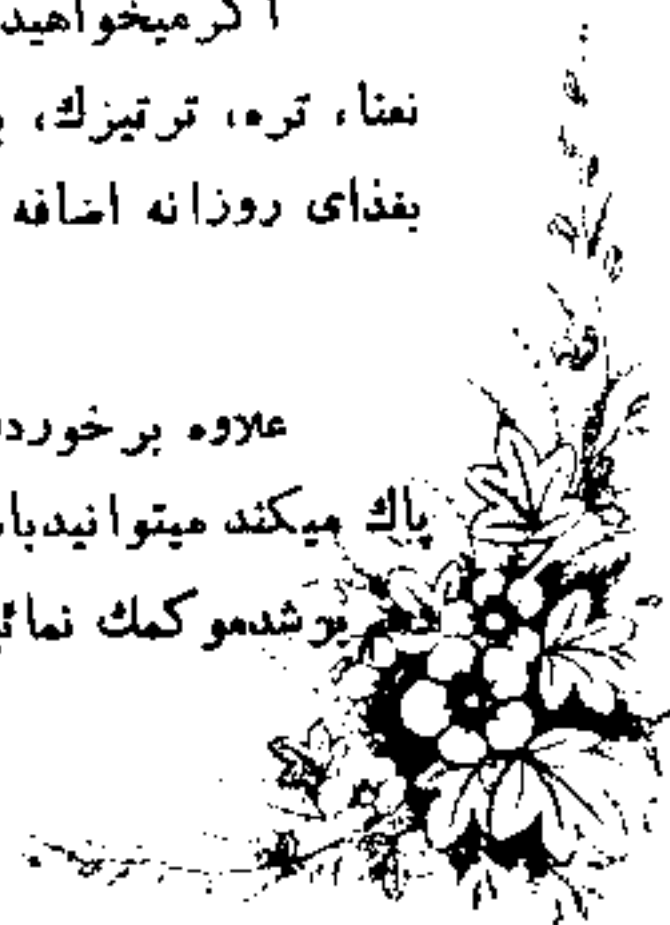 اگر میخواهید
نعنا، تره، ترتیزك،
بغذای روزانه اضافه
علاوه بر خورد
پاك میکند میتوانید با
بر شد مو كمك نمائ